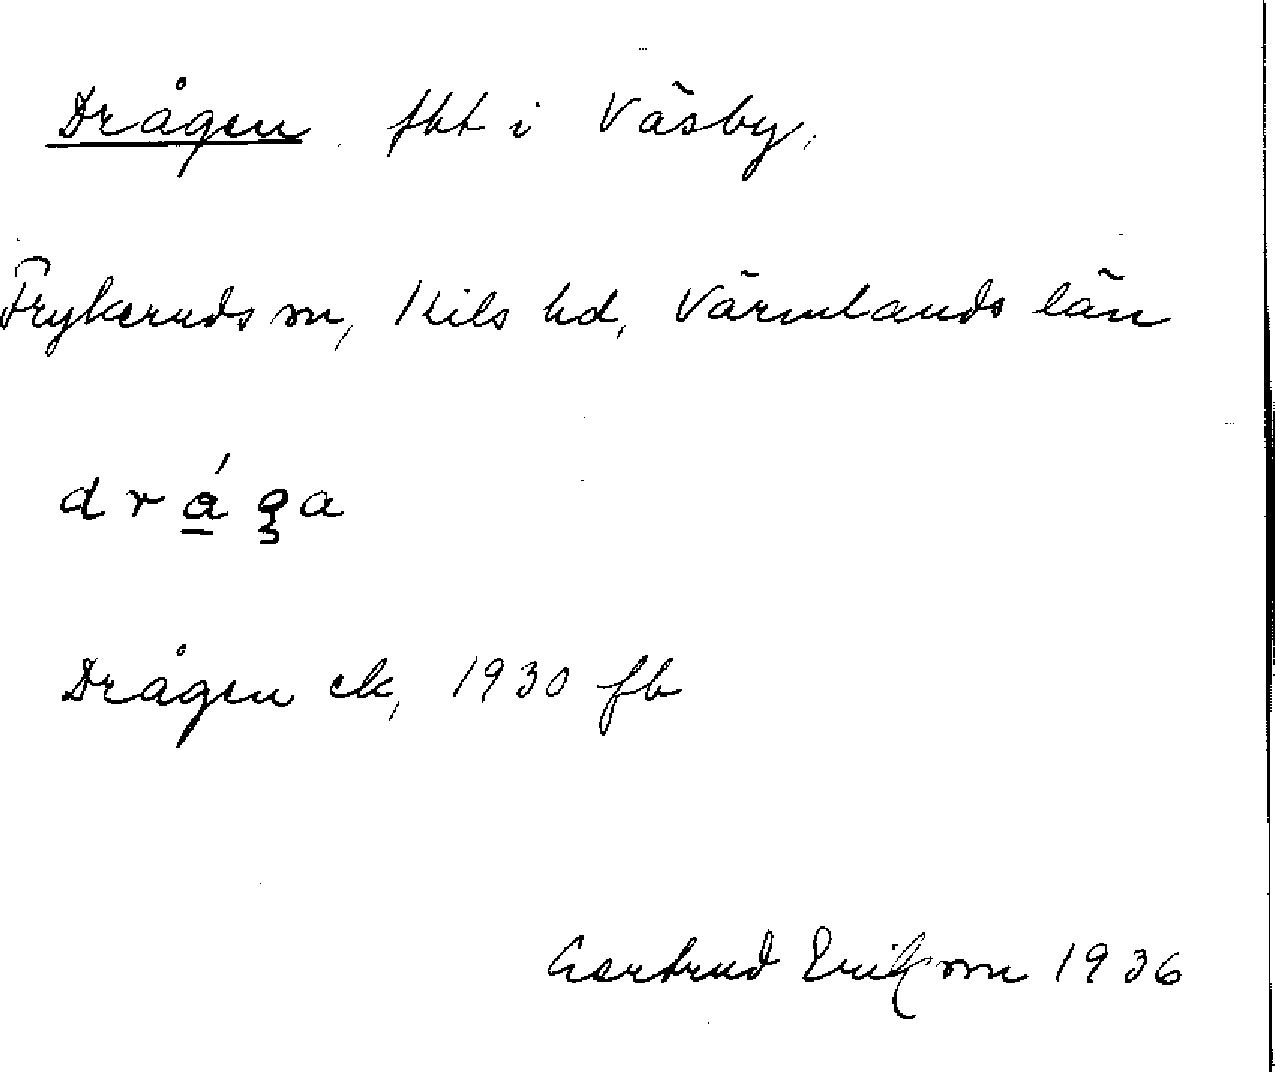 Drågen fht i Väsby,
Frykeruds sn, Kils hd, Värmlands län
dråga
Drågen ek, 1930 fb
Gertrud Eriksson 1936